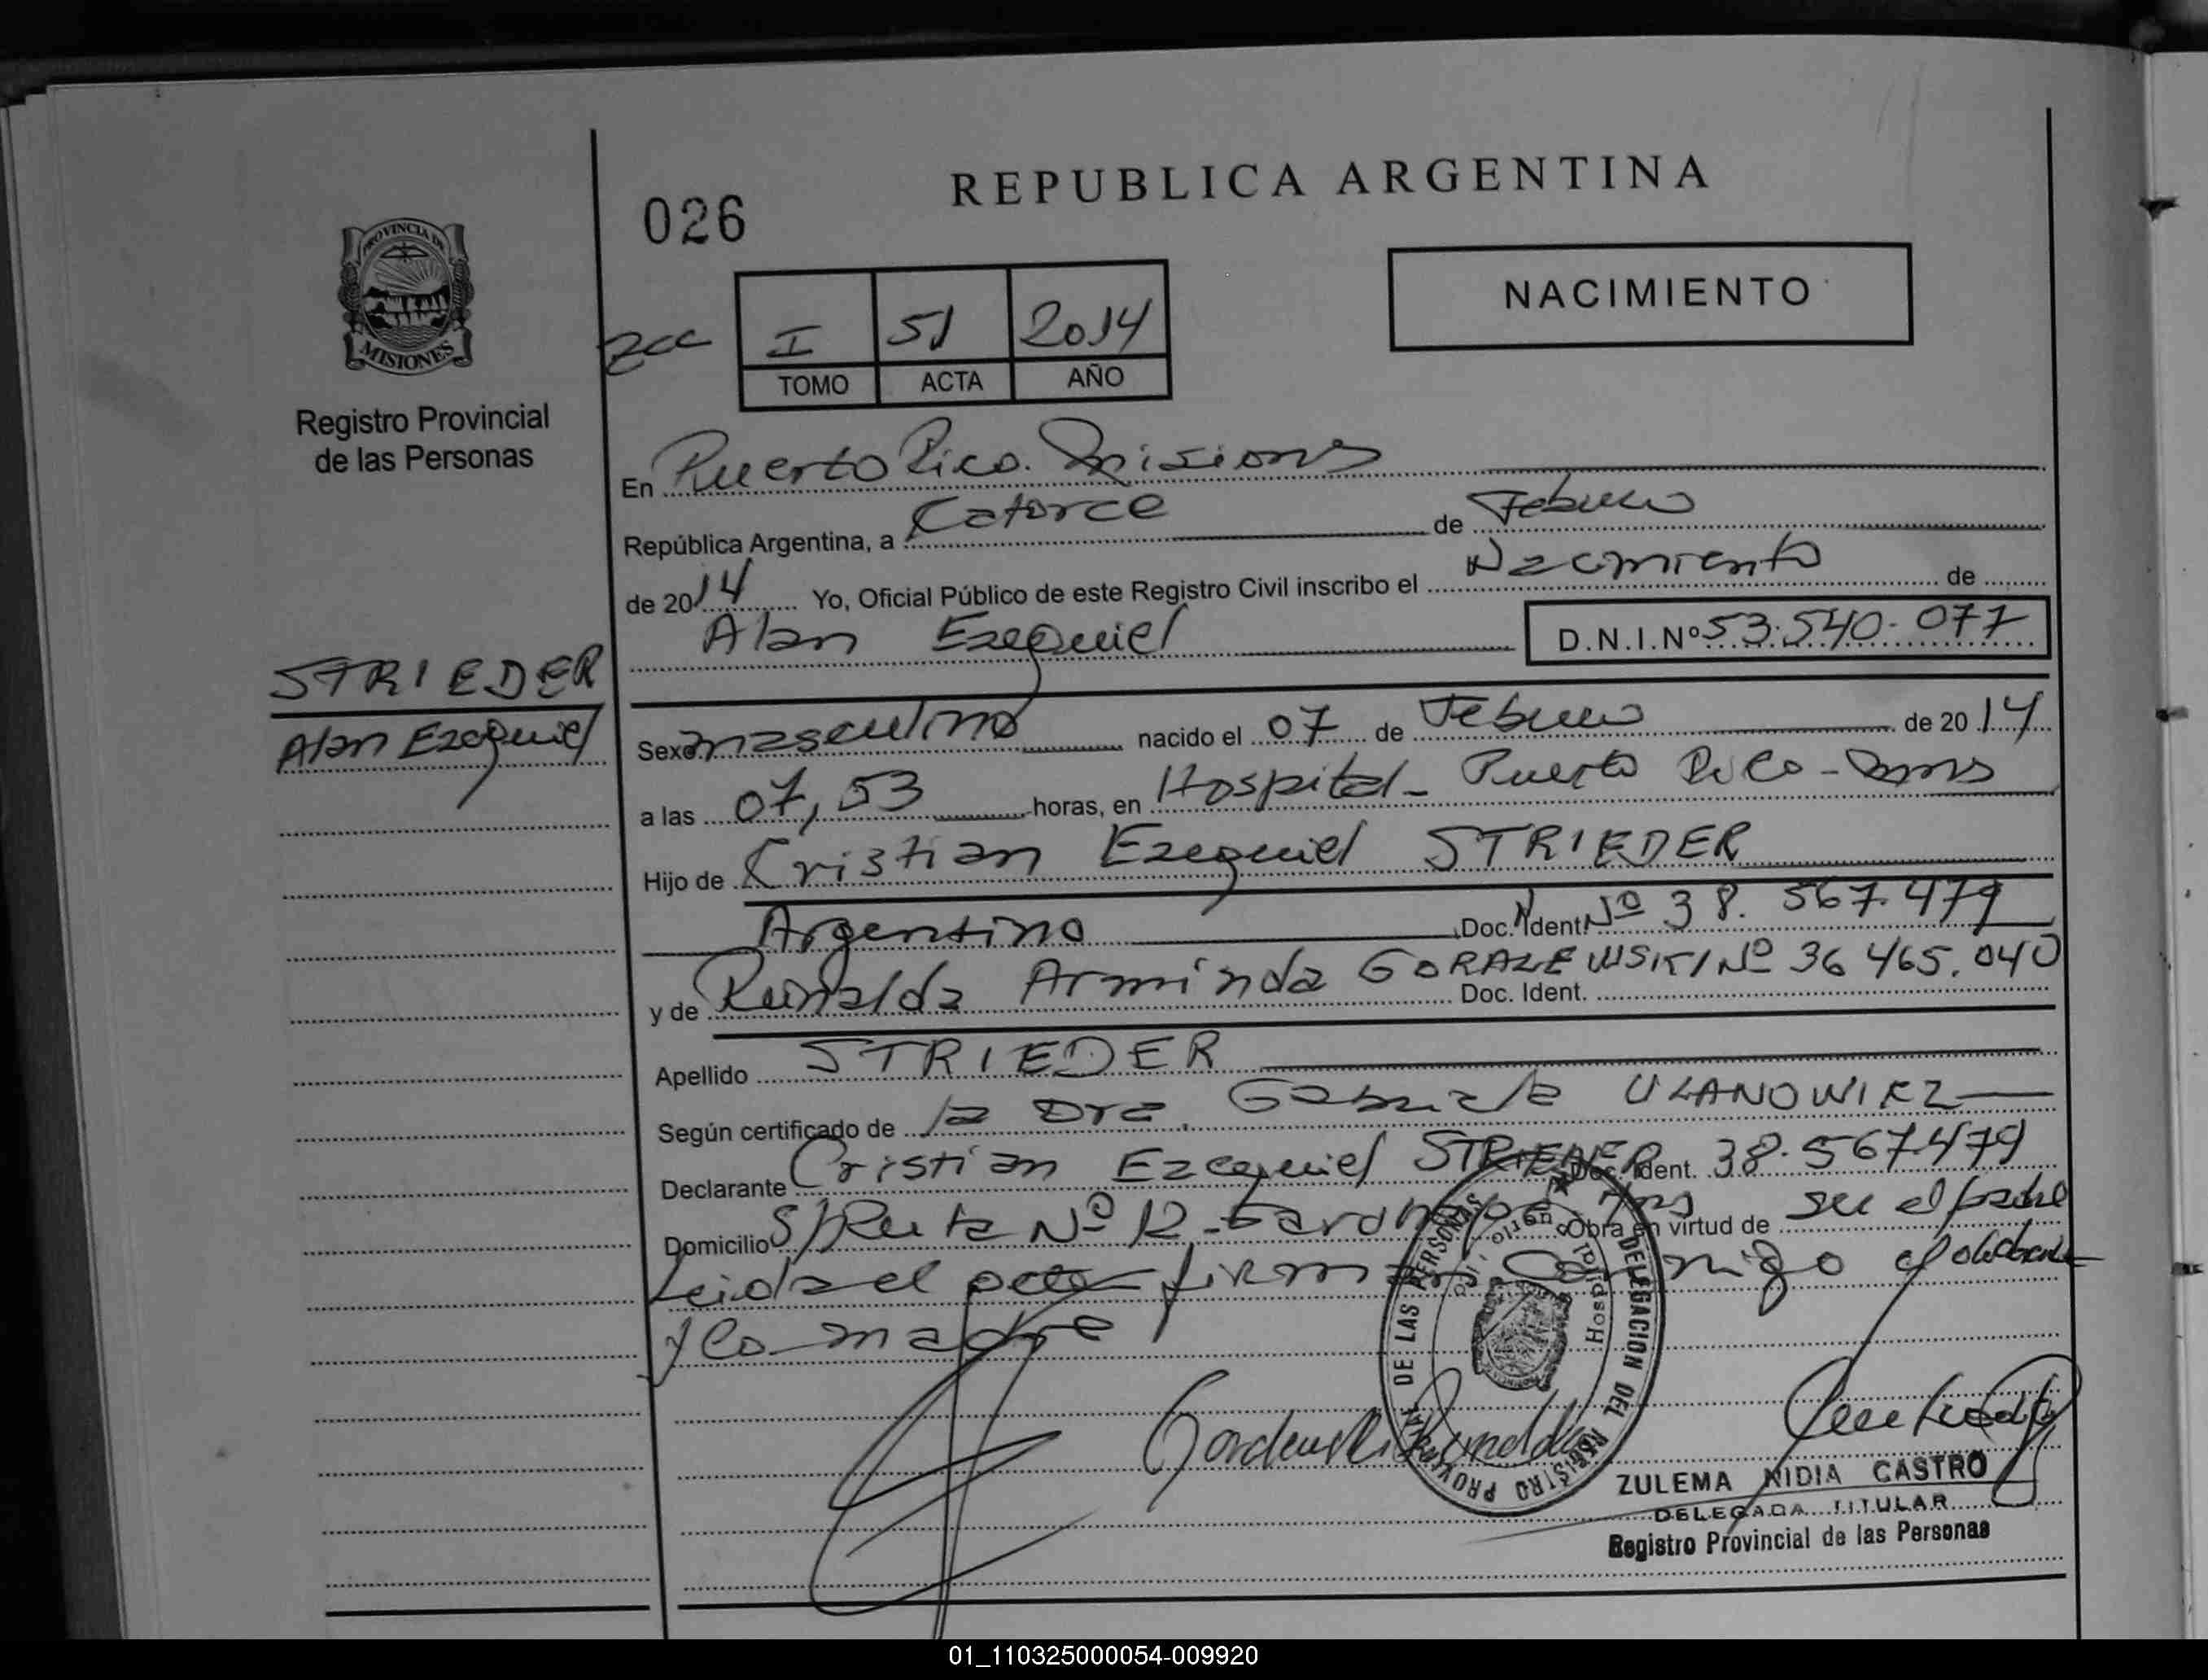 REPUBLICA ARGENTINA
026
NACIMIENTO
PROVINCIA DE
MISIONES
Registro Provincial
de las Personas
I 51 2014
TOMO ACTA AÑO
En Puerto Rico. Misiones
República Argentina, a Catorce de Febrero
de 2014 Yo, Oficial Público de este Registro Civil inscribo el Nacimiento de
Alan Ezequiel D.N.I.Nº 53.540.077
STRIEDER
Alan Ezequiel
Sexo masculino nacido el 07 de Febrero de 2014
a las 07,53 horas, en Hospital - Puerto Rico - Mnes
Hijo de Cristian Ezequiel STRIEDER
Argentino Doc. Ident. Nº 38.567.479
y de Reinalda Arminda GORALEWSKI Nº 36 465.040
Doc. Ident.
Apellido STRIEDER
Según certificado de la Dra. Gabriela ULANOWICZ
Declarante Cristian Ezequiel STRIEDER Doc. Ident. 38.567479
Domicilio S/Ruta Nº 12 - Obra en virtud de ser el padre
Leida el acta firman conmigo el declarante
y la madre
DELEGACION DEL REGISTRO PROVINCIAL DE LAS PERSONAS
Hospital
ZULEMA NIDIA CASTRO
DELEGADA TITULAR
Registro Provincial de las Personas
01_110325000054-009920